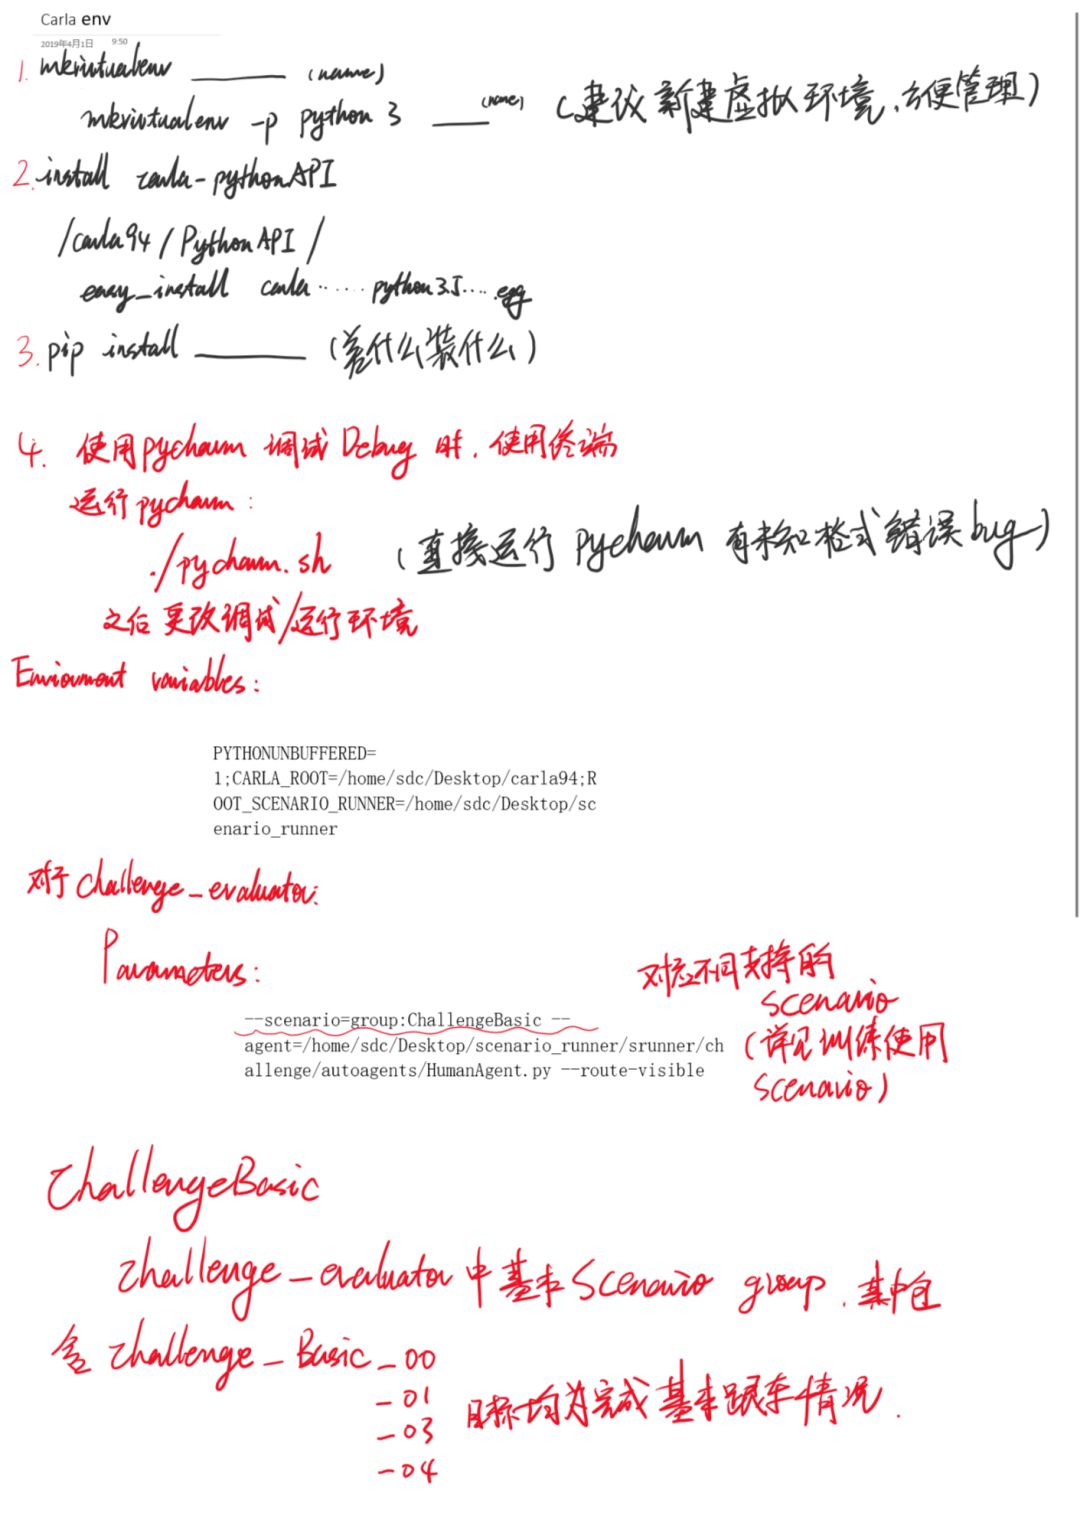 Carla env
2019年4月1日 9:50
1. mkvirtualenv ______ (name)
mkvirtualenv -p python3 ____ (name) (建议新建虚拟环境,方便管理)
2. install carla-pythonAPI
/carla94/PythonAPI/
easy_install carla ...... python3.5.....egg
3. pip install ______ (差什么装什么)
4. 使用pycharm 调试Debug 时, 使用终端
运行pycharm:
./pycharm.sh (直接运行 Pycharm 有未知格式错误bug)
之后更改调试/运行环境
Enviornment variables:
PYTHONUNBUFFERED=
1;CARLA_ROOT=/home/sdc/Desktop/carla94;R
OOT_SCENARIO_RUNNER=/home/sdc/Desktop/sc
enario_runner
对于challenge_evaluator:
Parameters:
对应不同支持的
scenario
(详见训练使用
scenario)
--scenario=group:ChallengeBasic --
agent=/home/sdc/Desktop/scenario_runner/srunner/ch
allenge/autoagents/HumanAgent.py --route-visible
ChallengeBasic
challenge_evaluator中基本Scenario group, 其中包
含 challenge_Basic_00
_01
_03
_04
目标均为完成基本跟车情况.